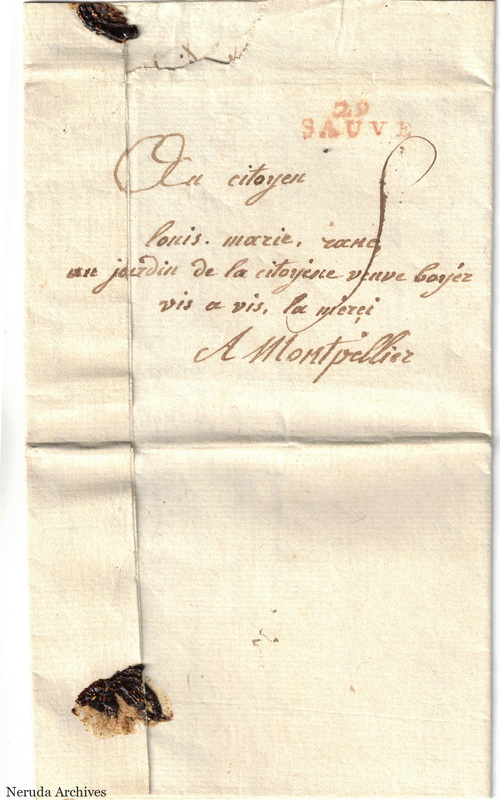 29
SAUVE
Au citoyen
louis. marie. ranc
au jardin de la citoyene veuve boyér
vis a vis. la merçi
A Montpellier
Neruda Archives